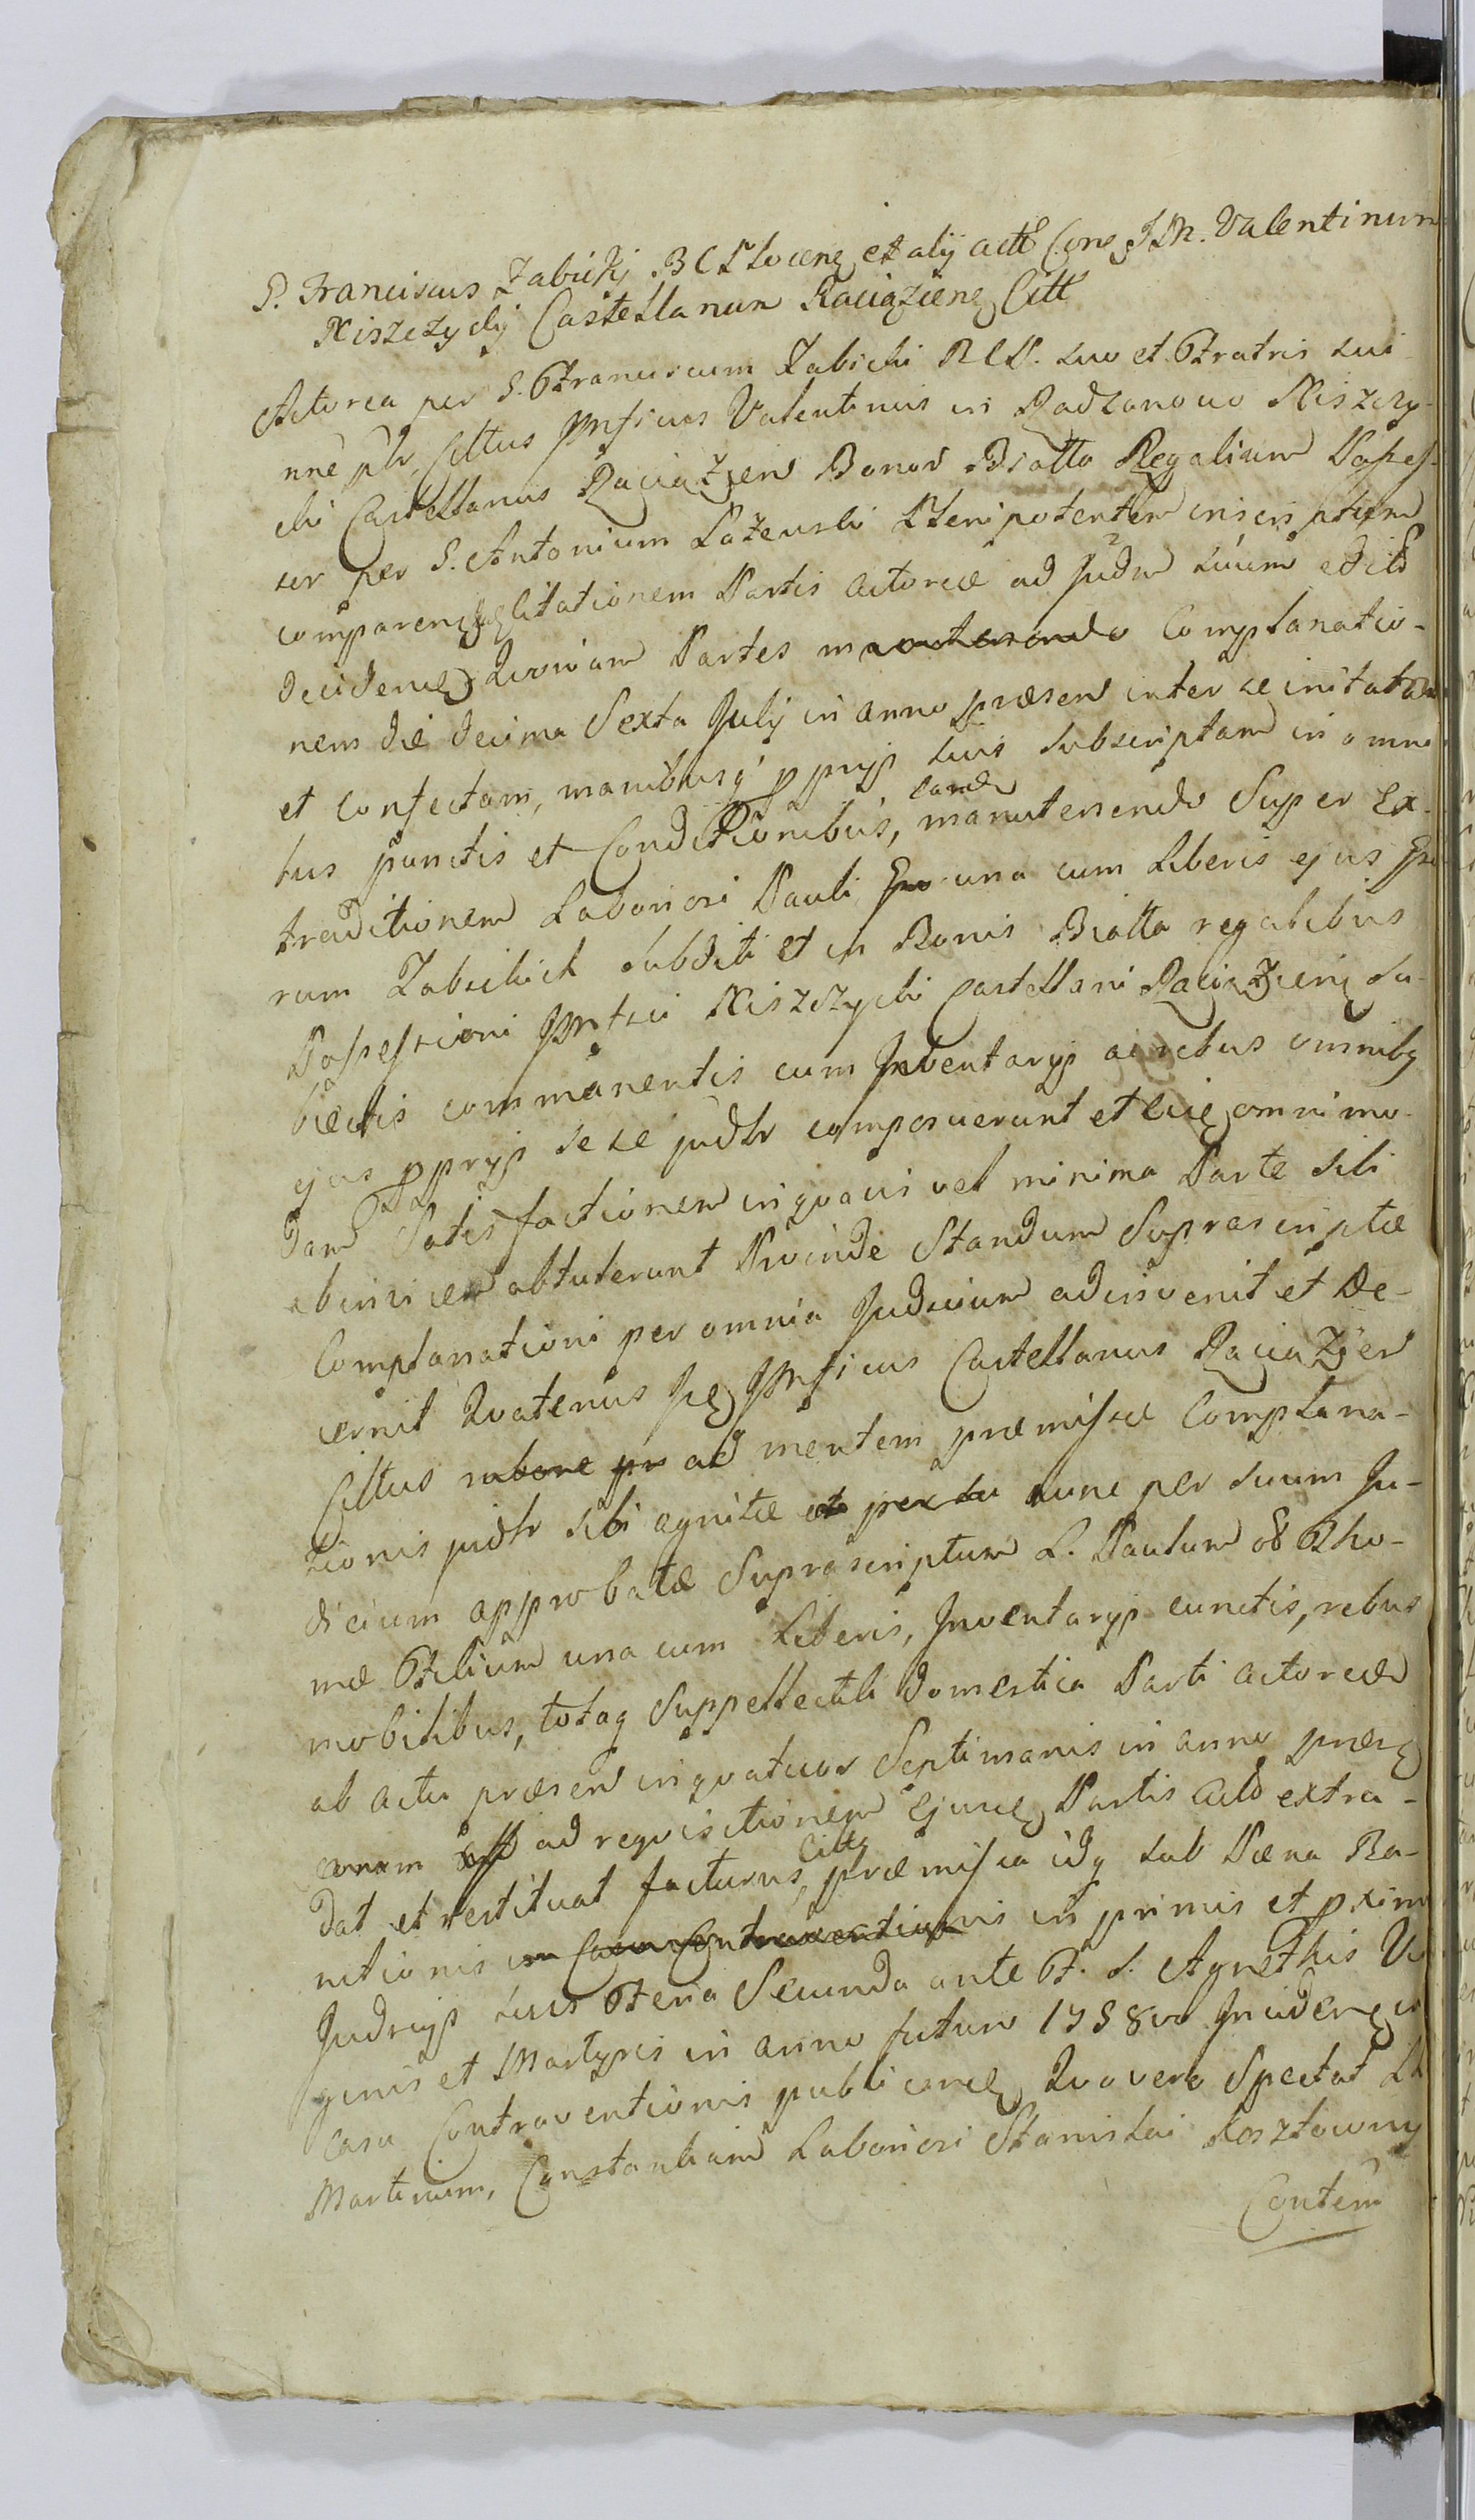 P. Franciscus Zabickj B C Plocenẽ et alij actt Cone JM. Valentinum
Niszczycky Castellanum Raciązienẽ Citt
Actorea per P. Franciscum Zabicki BCP. suo et Fratris sui
nne pttr, Cittus Mfficus Valentinus in Radzanowo Niszczy-
cki Castellanus Raciążien Bonor Biotta Regalium Possess-
sor per P. Antonium Łażewski Plenipotentem inscriptum
comparens citationem Partis Actoreæ ad Judm suum edit
Quoniam Partes manutenendo Complanatio-
nem die decima Sexta Julij in anno præsen inter se initatam
et confectam, manibusq pprijs suis subscriptam in omni-
bus punctis et Conditionibus, eande manutenendo Super Ex-
traditionem Laboriosi Pauli una cum Liberis ejus
rum Zabickich subditi et in Bonis Biotta regalibus
Possessioni Mffici Niszczycki Castellani Raciążienẽ su-
biectis commanentis cum Inventarijs ac rebus omnibq
ejus pprijs sese judtr composuerunt et omnimo-
dam Satisfactionem in quavis vel minima Parte sibi
abinvicem obtulerunt Proinde Standum Suprascriptæ
Complanationi per omnia Judicium adinvenit et De-
cernit Quatenus Mfficus Castellanus Raciążien
Cittus ad mentem præmissæ Complana-
tionis judtr sibi agnitæ nunc per suum Ju-
dicium approbatæ Suprascriptum L. Paulum
mæ Filium una cum Liberis, Inventarijs cunctis, rebus
mobilibus, totaq Suppellectili domestica Parti Actoreæ
ab actu præsen in quatuor Septimanis in anno præsẽ
ad requisitionem Ejusdẽ Partis Actt extra-
dat et restituat facturus, Citts præmissa idq sub Pæna Ba-
nitionis in Casu Contraventionis in primis et pximis
Judicijs suis Feria Secunda ante F. S. Agnethis Vir
ginis et Martyris in anno futuro 1758vo Incidenẽ in
casu Contraventionis publicandẽ Quo vero Spectat
Martinum, Constantiam Laboriosi Stanislai Kosztowny
Contem